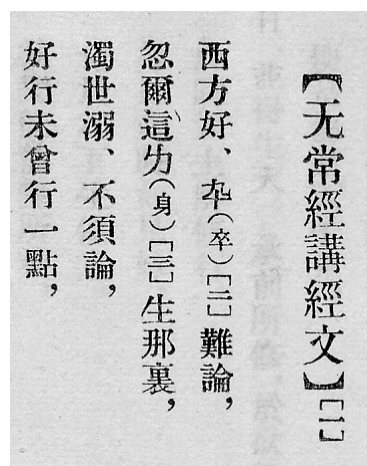 【无常經講經文】[一]
西方好、卆(卒)[二]難論,
忽爾這(身)[三]生那裏,
濁世溺、不須論,
好行未曾行一點,